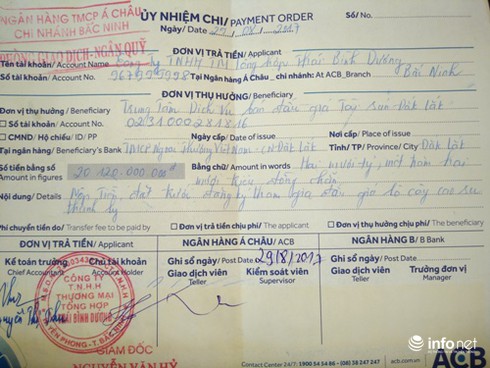 NGÂN HÀNG TMCP Á CHÂU
CHI NHÁNH BẮC NINH
PHÒNG GIAO DỊCH-NGÂN QUỸ
ỦY NHIỆM CHI/ PAYMENT ORDER
Số/No.
Ngày/Date 29/08/2017
ĐƠN VỊ TRẢ TIỀN/ Applicant
Tên tài khoản/ Account Name Công ty TNHH TM Tổng hợp Thái Bình Dương
Số tài khoản/ Account No. Tại Ngân hàng Á Châu_ chi nhánh/ At ACB_Branch Bắc Ninh
ĐƠN VỊ THỤ HƯỞNG/ Beneficiary
Đơn vị thụ hưởng/ Beneficiary Trung tâm Dịch vụ bán đấu giá Tây Sơn Đắk Lắk
Số tài khoản/ Account No. 0231000281816
CMND/ Hộ chiếu/ ID/ PP Ngày cấp/ Date of issue Nơi cấp/ Place of issue
Tại ngân hàng/ Beneficiary's Bank TMCP Ngoại Thương Việt Nam - CN Đắk Lắk Tỉnh/ TP/ Province/ City Đắk Lắk
Số tiền bằng số
Amount in figures 20 120.000.000đ Bằng chữ/ Amount in words Hai mươi tỷ, một trăm hai
mươi triệu đồng chẵn
Nội dung/ Details Nộp Tiền đặt trước đăng ký tham gia đấu giá lô cây cao su
thanh lý
Phí chuyển tiền do/ Transfer fee to be paid by Đơn vị trả tiền chịu phí/ The applicant Đơn vị thụ hưởng chịu phí/ The beneficiary
ĐƠN VỊ TRẢ TIỀN/ Applicant NGÂN HÀNG Á CHÂU/ ACB NGÂN HÀNG B/ B Bank
Kế toán trưởng Chủ tài khoản Ghi sổ ngày/ Post Date 29/8/2017 Ghi sổ ngày/ Post Date
Chief Accountant Account Holder Giao dịch viên Kiểm soát viên Giao dịch viên Trưởng đơn vị
Teller Supervisor Teller Manager
CÔNG TY
T.N.H.H
THƯƠNG MẠI
TỔNG HỢP
THÁI BÌNH DƯƠNG
H.YÊN PHONG-T.BẮC NINH
GIÁM ĐỐC
NGUYỄN VĂN HỶ
Contact Center 24/7: 1900 54 54 86 - (08) 38 247 247
acb.com.vn
ACB
infonet
www.infonet.vn